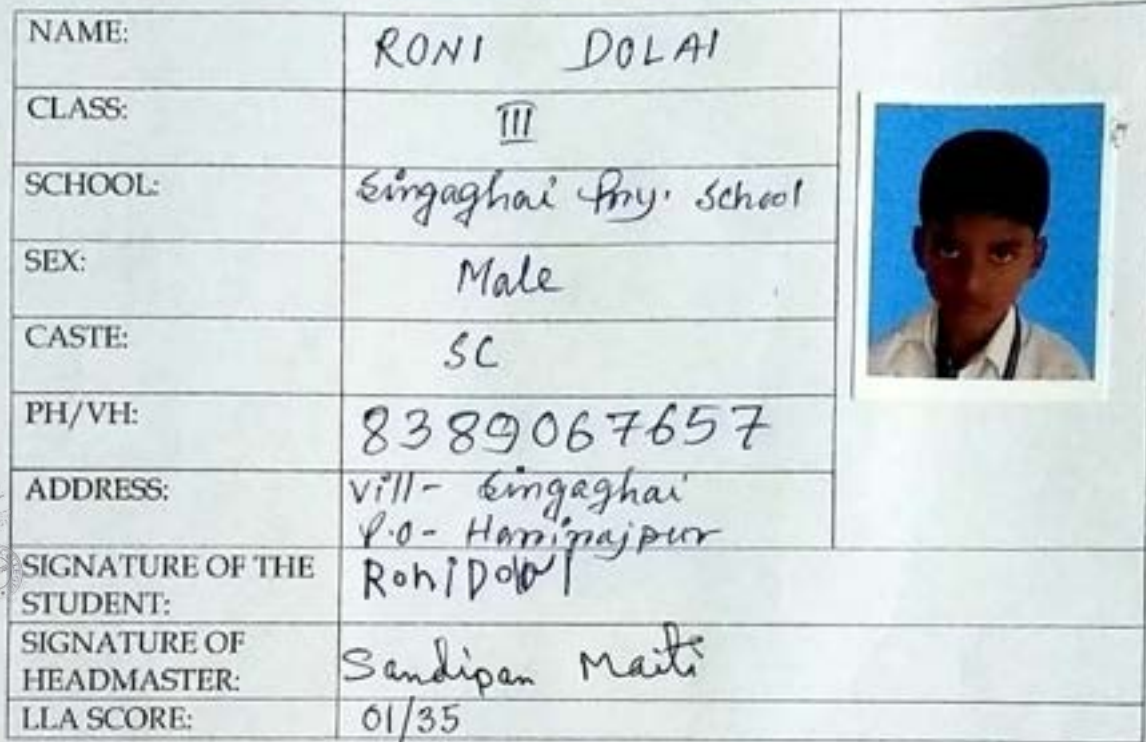 NAME: RONI DOLAI
CLASS: III
SCHOOL: Singaghai Pry. School
SEX: Male
CASTE: SC
PH/VH: 8389067657
ADDRESS: Vill- Singaghai
P.O-
SIGNATURE OF THE STUDENT: Roni Dolai
SIGNATURE OF HEADMASTER: Sandipan Maiti
LLA SCORE: 01/35